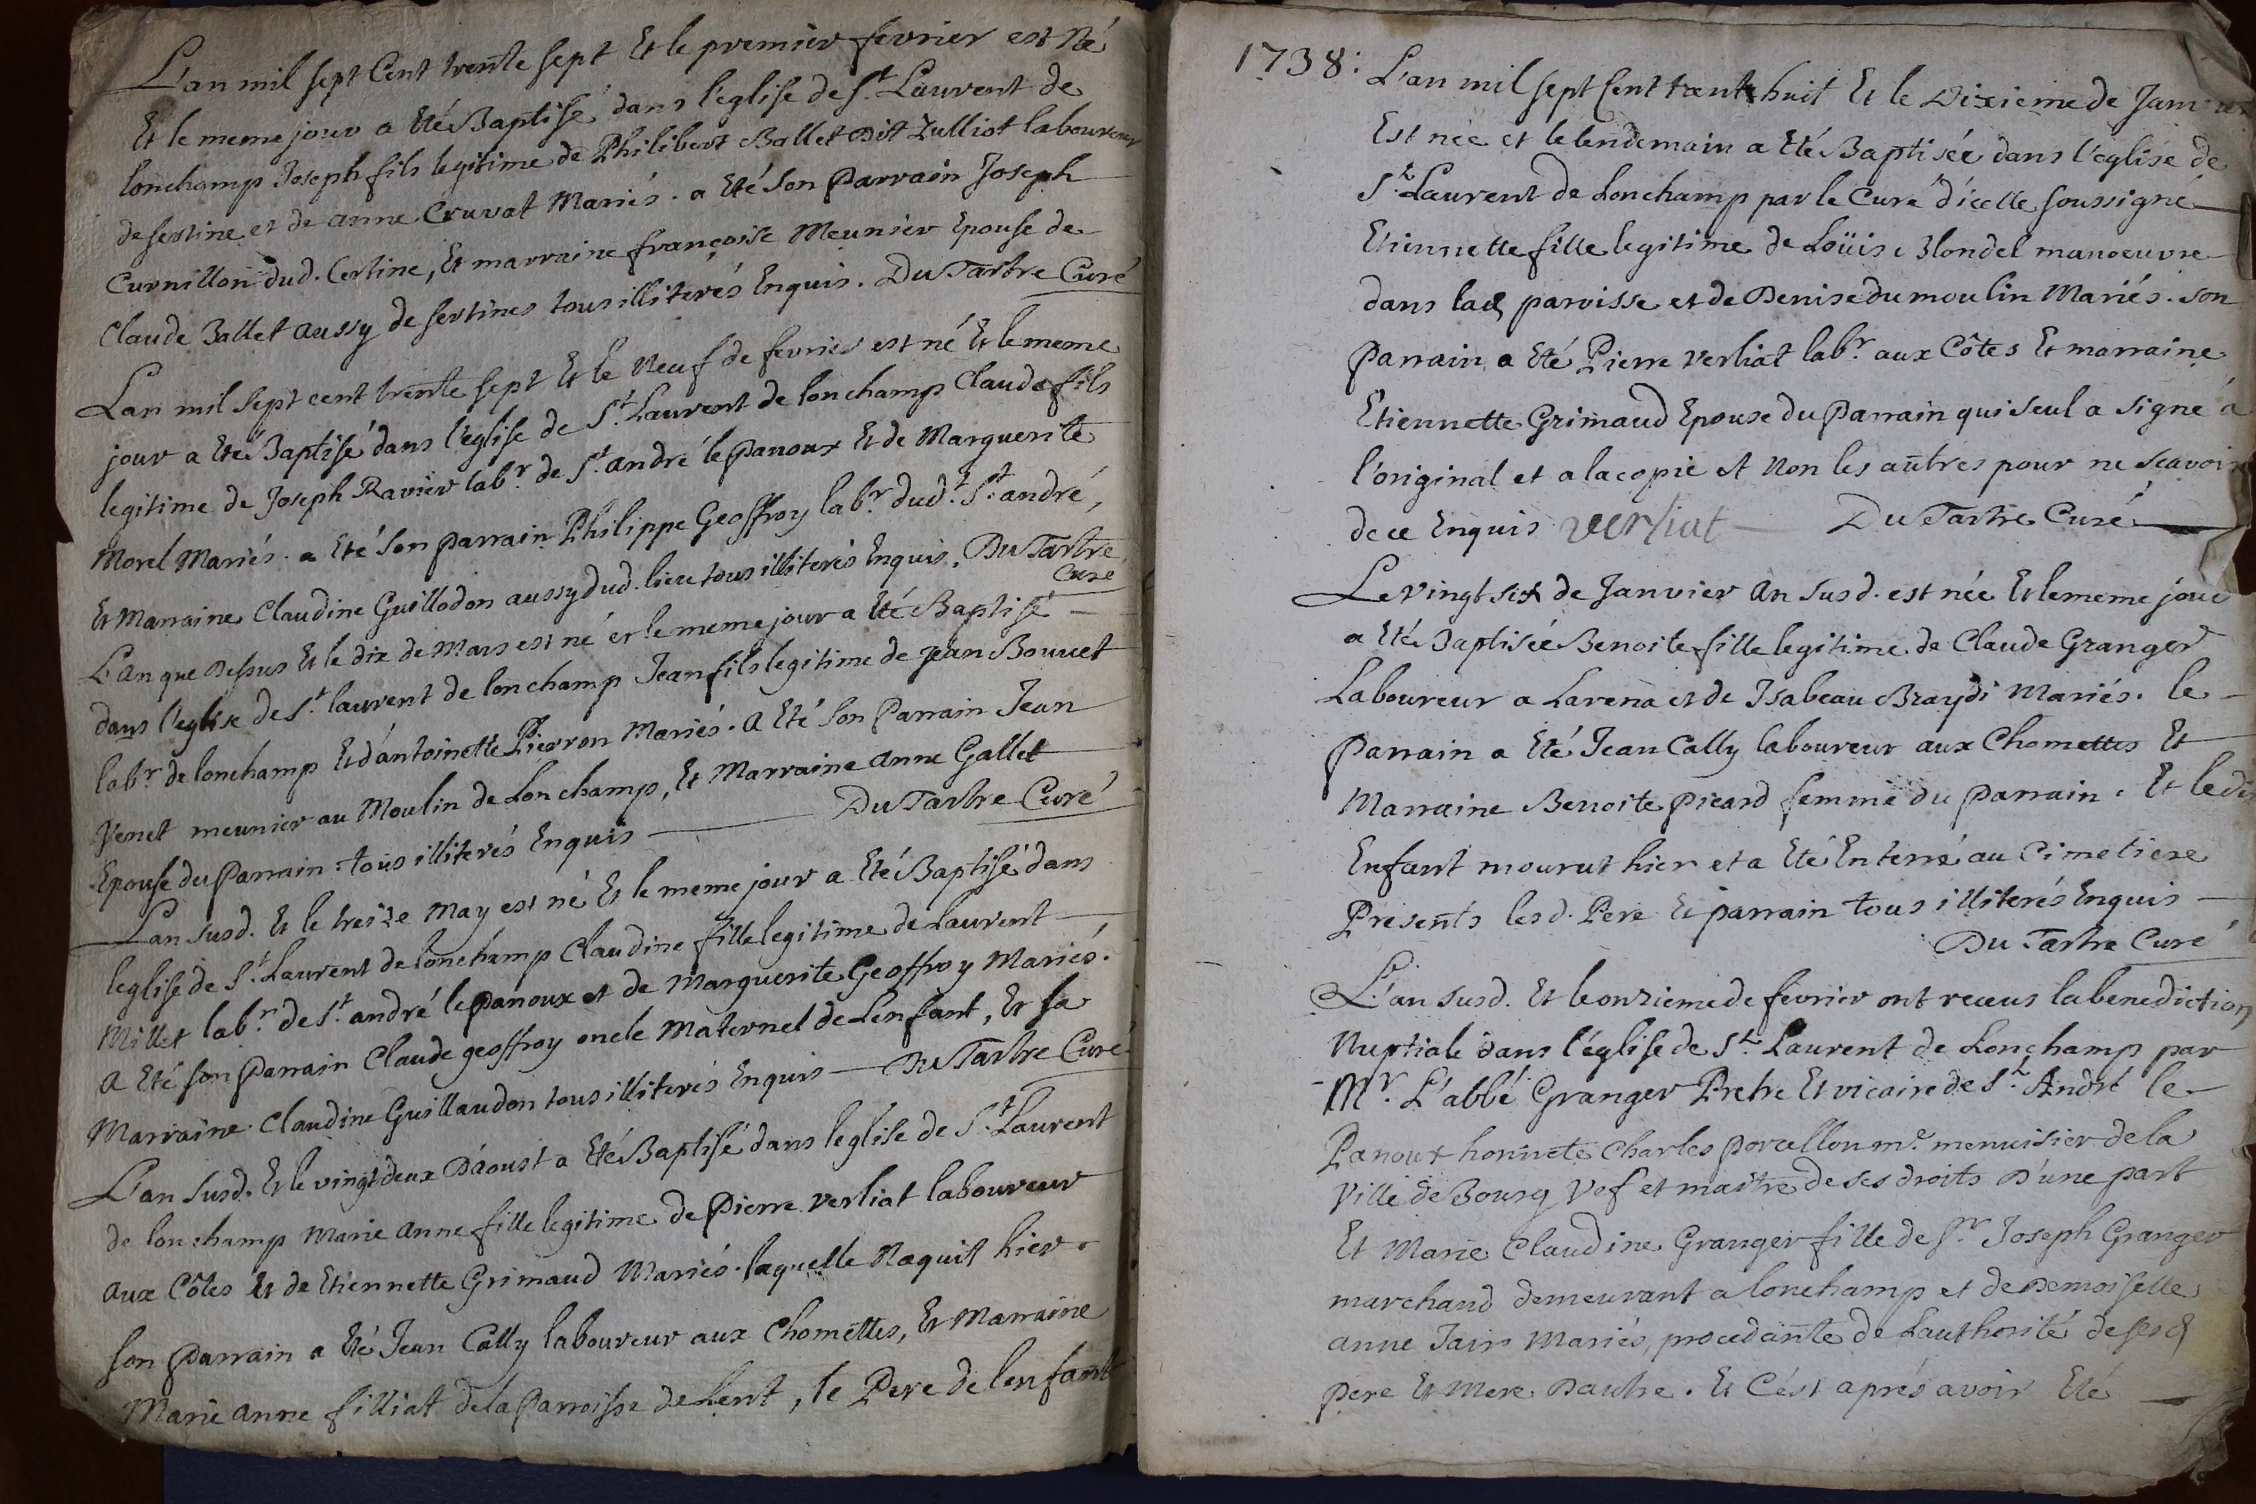 L'an mil sept Cent trente sept Et le premier fevrier est Né
Et le meme jour a Eté Baptisé dans l'eglise de St. Laurent de
lonchamp Joseph fils legitime de Philibert Ballet Dit Zulliot laboureur
de sertine et de anne Cruvat Mariés. a Eté Son Parrain Joseph
Curnillon dud. Certine, Et marraine françoise Meunier Epouse de
Claude Ballet aussy de sertines tous illiterés Enquis. DuTartre Curé
Lan mil sept cent trente sept Et le Neuf de fevrier est né Et le meme
jour a Eté Baptisé dans l'eglise de St. Laurent de lonchamp Claude fils
legitime de Joseph Ravier labr. de St. andré le panoux Et de Marguerite
Morel Mariés. a Eté Son parrain Philippe Geoffroy labr. dudt. St. andré,
Et Marraine Claudine Guillodon aussy dud. lieu tous illiterés Enquis. DuTartre
Curé
L'an que Dessus Et le dix de Mars est né et le meme jour a Eté Baptisé
dans l'eglise de St. laurent de lonchamp Jean fils legitime de jean Bouvet
labr. de lonchamp Et d'antoinette Pierron Mariés. a Eté Son Parrain Jean
Venet meunier au Moulin de Lonchamp, Et Marraine anne Gallet
Epouse du Parrain tous illiterés Enquis DuTartre Curé
Lan Susd. Et le treize May est né Et le meme jour a Eté Baptisé dans
leglise de St. Laurent de lonchamp Claudine fille legitime de Laurent
Millet labr. de St. andré lepanoux et de Marguerite Geoffroy Mariés.
a Eté son Parrain Claude geoffroy oncle Maternel de L'enfant, Et sa
Marraine Claudine Guillaudon tous illiterés Enquis DuTartre Curé
L'an Susd. Et le vingt deux D'áoust a Eté Baptisé dans leglise de St. Laurent
de lonchamp Marie anne fille legitime de Pierre verliat laboureur
aux Côtes Et de Etiennette Grimaud Mariés. laquelle Naquit hier.
son Parrain a Eté Jean Cally laboureur aux Chomettes, Et Marraine
Marie anne filliat de la Parroisse de Lent, le Pere de lenfant
1738: L'an mil sept Cent trente huit Et le Dixieme de Janvier
Est née et le lendemain a Eté Baptisée dans l'eglise de
St. Laurent de Lonchamp par le Curé d'icelle soussigné
Etiennette fille legitime de Loüis Blondel manoeuvre
dans lad. paroisse et de Denise dumoulin Mariés. son
Parrain a Eté Pierre verliat labr. aux Côtes Et marraine
Etiennette Grimaud Epouse du Parrain qui seul a signé a
l'original et a la copie et Non les autres pour ne Scavoir
de ce Enquis verliat DuTartre Curé
Le vingt six de Janvier an susd. est née Et le meme jour
a Eté Baptisée Benoite fille legitime de Claude Granger
Laboureur a Larena et de Isabeau Braydi Mariés. le
Parrain a Eté Jean Cally laboureur aux Chomettes Et
Marraine Benoite Picard femme du Parrain. Et ledit
Enfant mourut hier et a Eté Enterré au Cimetiere
Presents lesd. Pere Et parrain tous illiterés Enquis
Du Tartre Curé
L'an susd. Et le onzieme de fevrier ont receus la benediction
Nuptiale dans l'église de St. Laurent de Lonchamp par
Mr. L'abbé Granger Pretre Et vicaire de St. André le
Panoux honnete Charles Porcellon me. menuisier de la
Ville de Bourg Vef et maitre de ses droits D'une part
Et Marie Claudine Granger fille de Sr. Joseph Granger
marchand demeurant a lonchamp et de Demoiselle
anne Jain Mariés, procedante de Lauthorité de sesd.
Pere Et Mere Dautre. Et C'est aprés avoir Eté